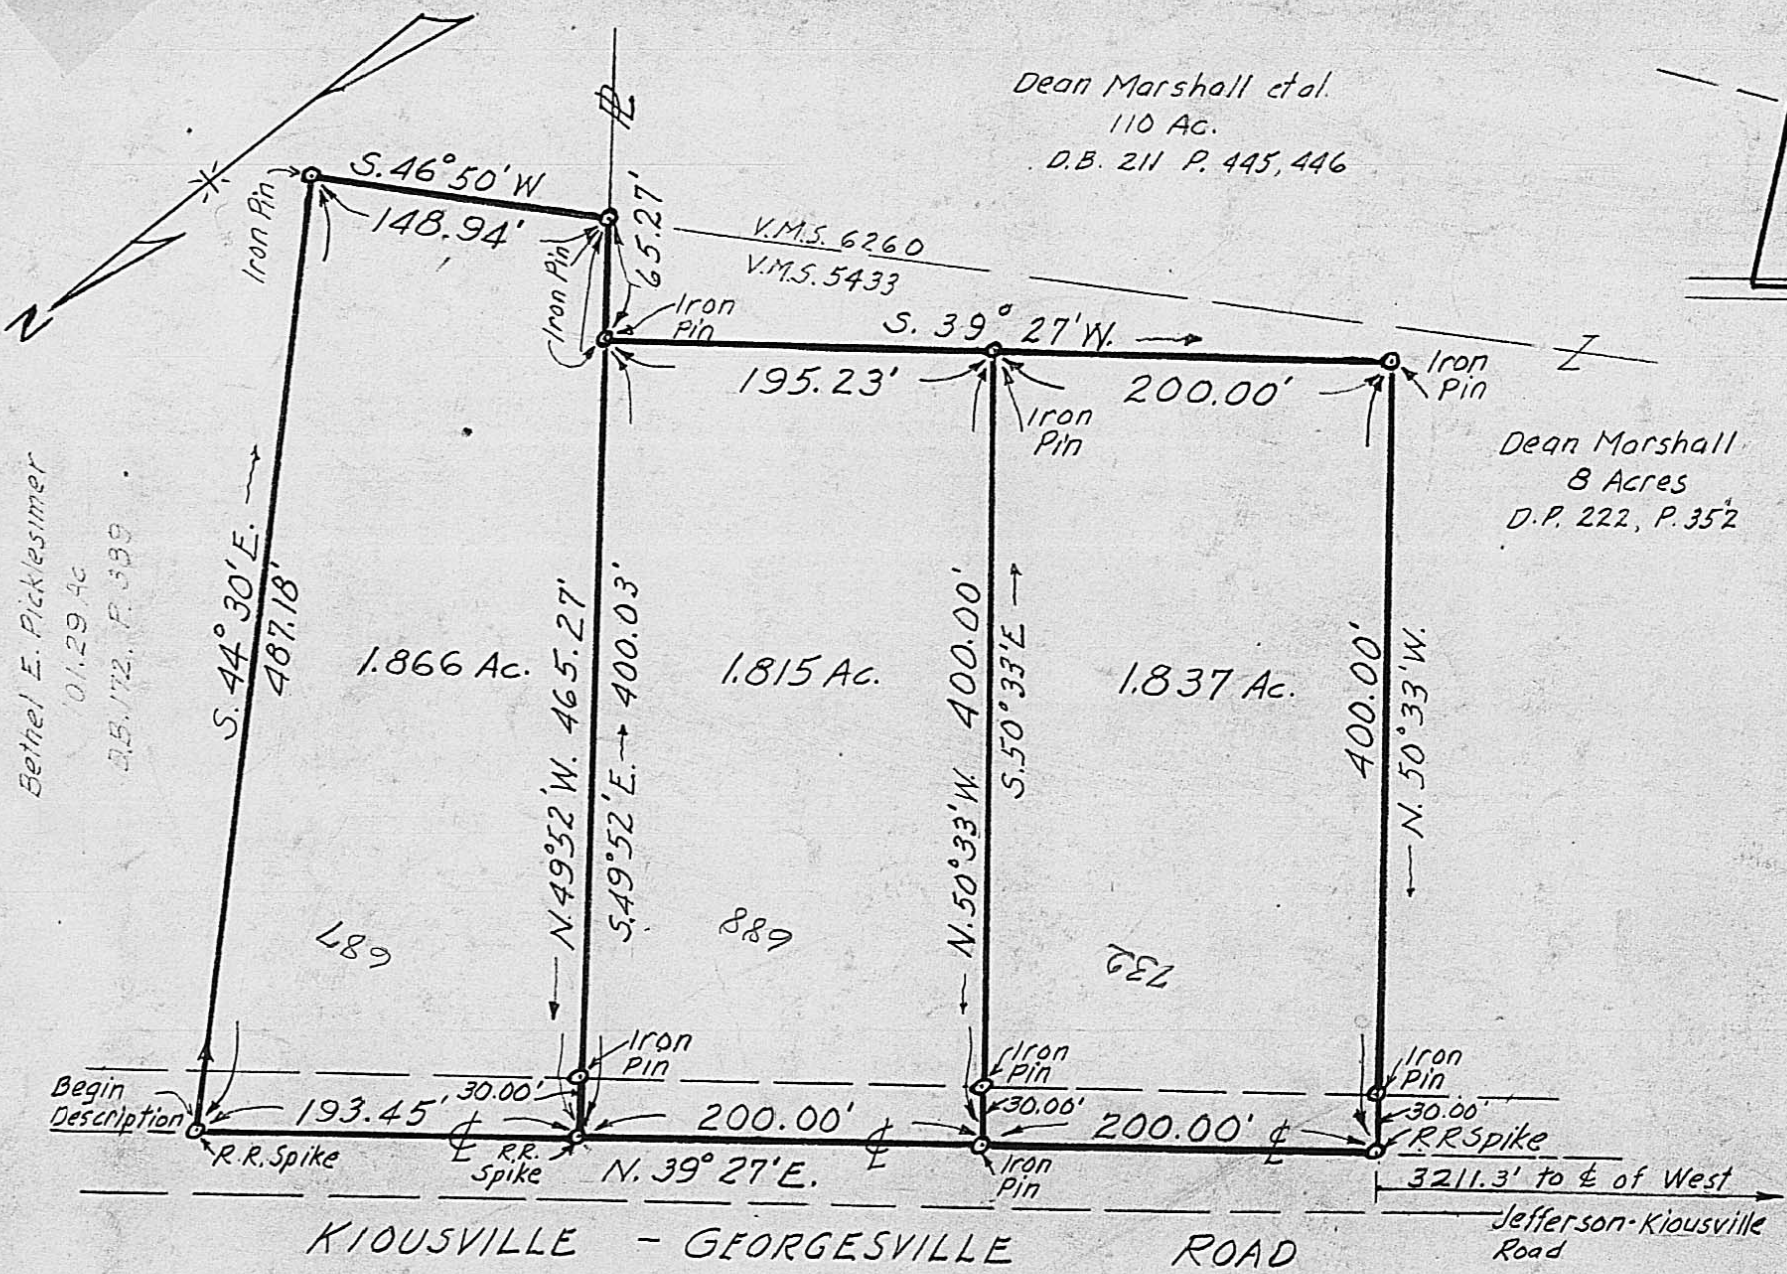 Dean Marshall et al.
110 Ac.
D.B. 211 P. 445, 446
PL
S. 46° 50' W
148.94'
Iron Pin
Iron Pin
65.27'
N
V.M.S. 6260
V.M.S. 5433
Iron
Pin
S. 39° 27' W.
195.23'
200.00'
Iron
Pin
Iron
Pin
Dean Marshall
8 Acres
D.P. 222, P. 352
Bethel E. Picklesimer
101.29 Ac
D.B. 172, P. 339
S. 44° 30' E.
487.18'
1.866 Ac.
N. 49° 52' W. 465.27'
S. 49° 52' E. 400.03'
1.815 Ac.
N. 50° 33' W. 400.00'
S. 50° 33' E
1.837 Ac.
400.00'
N. 50° 33' W.
687
688
732
Begin
Description
193.45'
30.00'
Iron
Pin
200.00'
Iron
Pin
30.00'
200.00'
Iron
Pin
30.00'
R.R. Spike
R.R. Spike
℄
R.R.
Spike
N. 39° 27' E.
℄
Iron
Pin
℄
3211.3' to ℄ of West
Jefferson-Kiousville
Road
KIOUSVILLE - GEORGESVILLE ROAD